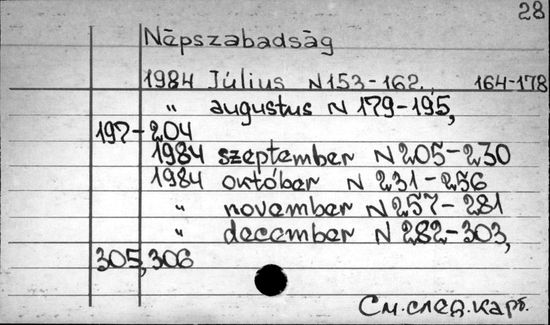 28
Népszabadság
1984 Július N153-162, 164-178
" augusztus N 179-195,
197-204
1984 szeptember N 205-230
1984 október N 231-256
" november N 257-281
" december N 282-303,
305,306
См.след.карт.